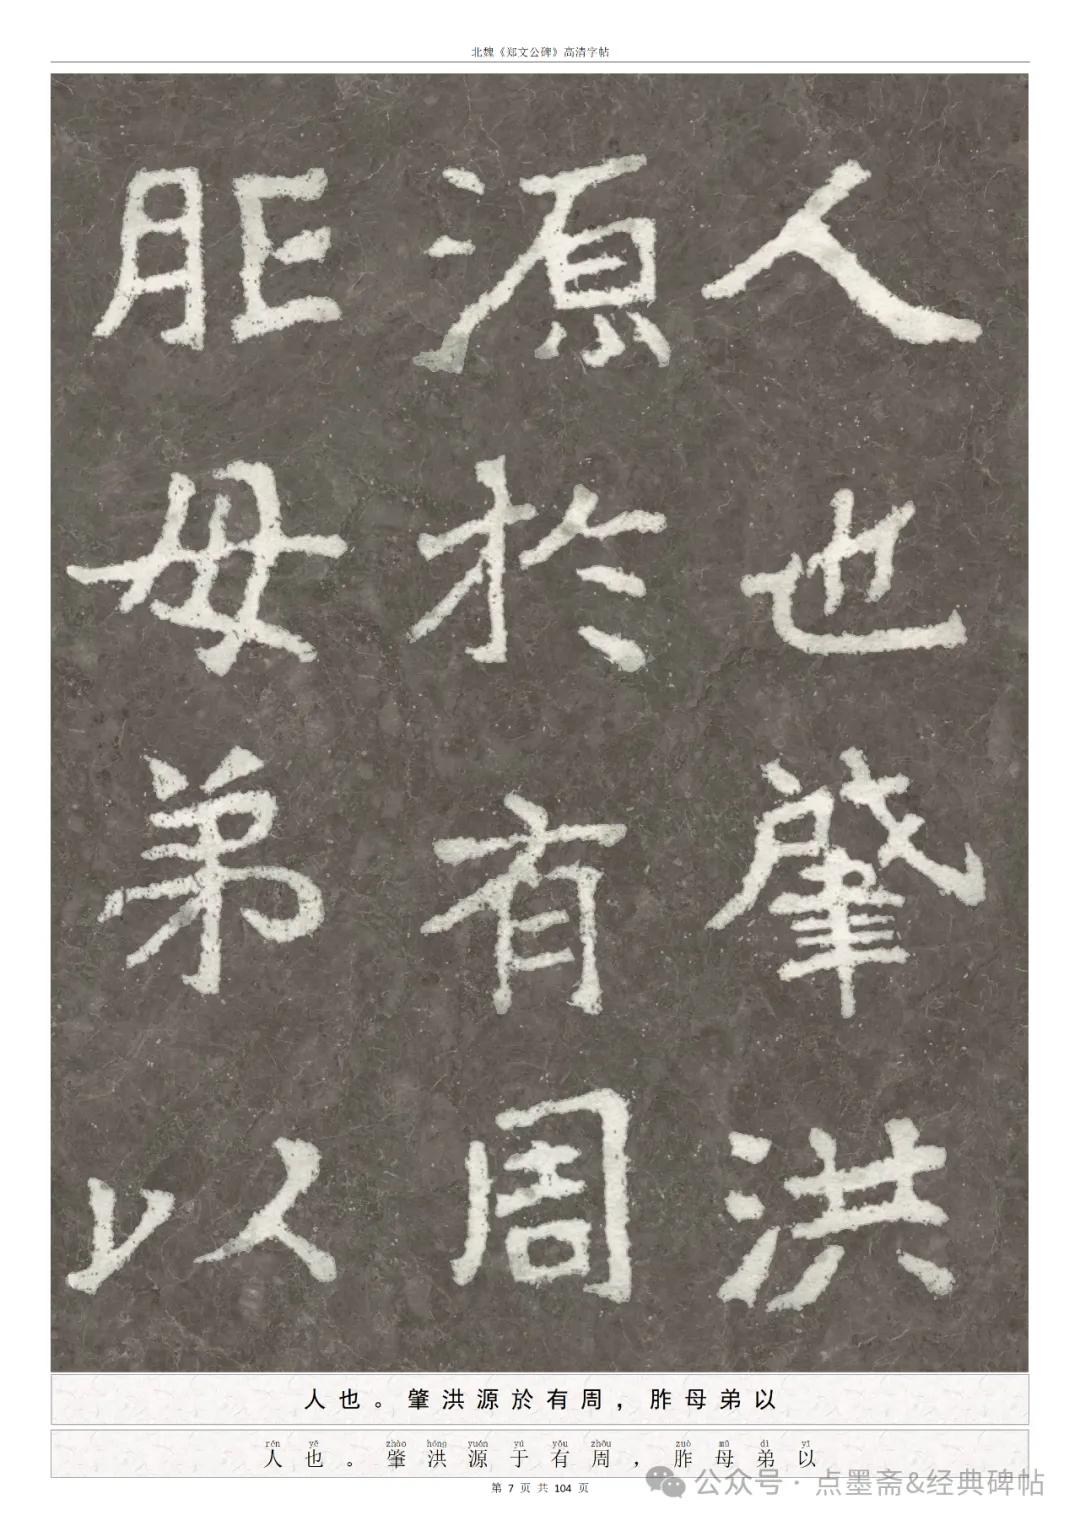 北魏《郑文公碑》高清字帖
人也肇洪
源於有周
胙母弟以
人也。肇洪源於有周，胙母弟以
rén yě zhào hóng yuán yú yǒu zhōu zuò mǔ dì yǐ
人也。肇洪源于有周，胙母弟以
第 7 页 共 104 页
公众号 · 点墨斋&经典碑帖